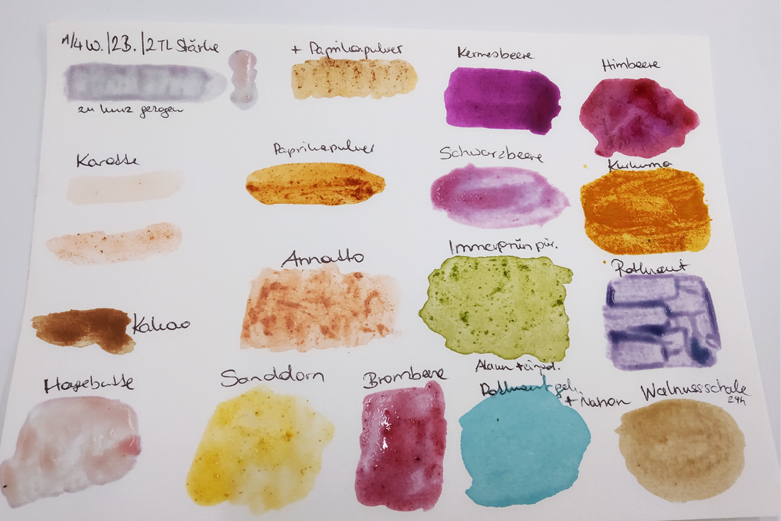 1/4 W. / 2B. / 2TL Stärke
zu kurz gezogen
+ Paprikapulver
Kermesbeere
Himbeere
Karotte
Paprikapulver
Schwarzbeere
Kurkuma
Annatto
Immergrün pür.
Rotkraut
Kakao
Hagebutte
Sanddorn
Brombeere
Alaun +
Rotkraut gek.
+ Natron
Walnussschale
24h